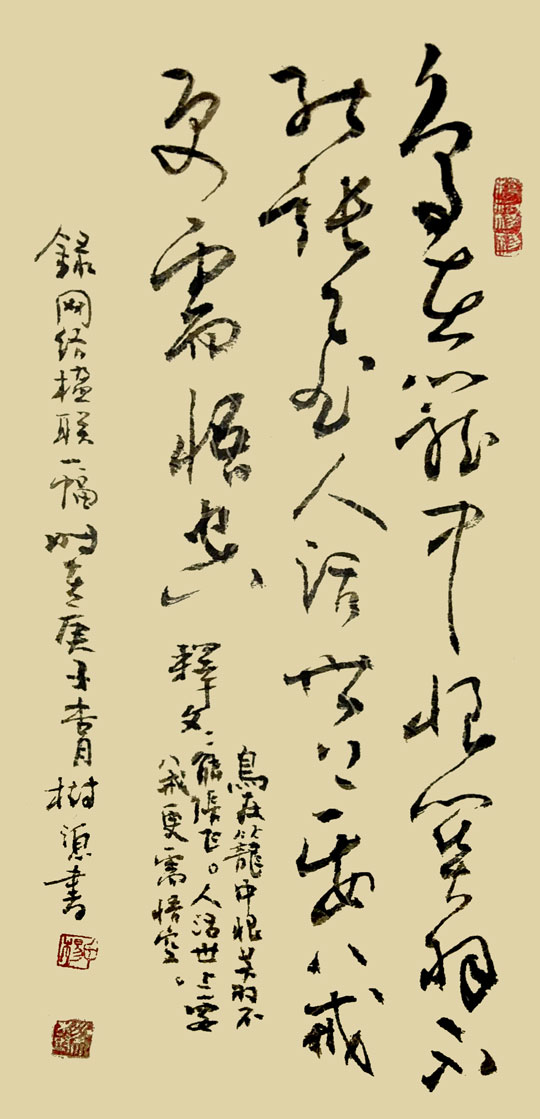 鳥在籠中恨關羽不
能張飛人活世上要八戒
更需悟空
釋文：
鳥在籠中恨关羽不
能張飞。人活世上要
八戒更需悟空。
録网络楹联一幅时在庚子杏月樹源書